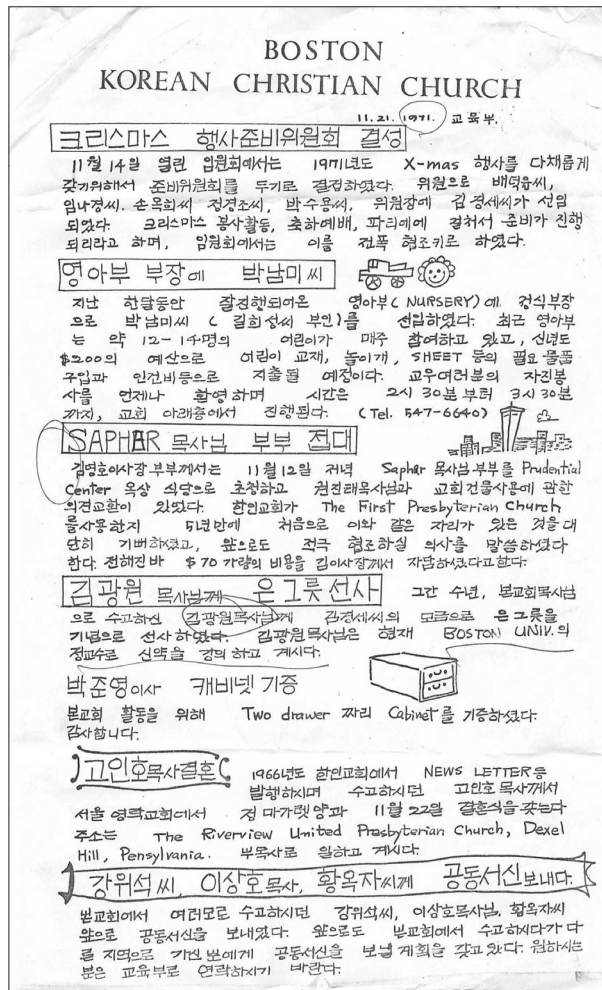 BOSTON
KOREAN CHRISTIAN CHURCH
11.21. 1971. 교육부.
크리스마스 행사준비위원회 결성
11월 14일 열린 임원회에서는 1971년도 X-mas 행사를 다채롭게
갖기위해서 준비위원회를 두기로 결정하였다. 위원으로 배덕윤씨,
임나경씨. 손옥희씨 정경조씨, 박수용씨, 위원장에 김경세씨가 선임
되었다. 크리스마스 봉사활동, 축하예배, 파티에에 걸쳐서 준비가 진행
되리라고 하며, 임원회에서는 이를 전폭 협조키로 하였다.
영아부 부장에 박남미씨
지난 한달동안 잘진행되어온 영아부(NURSERY)에 정식부장
으로 박남미씨 (김희성씨 부인)를 선임하였다. 최근 영아부
는 약 12-14명의 어린이가 매주 참여하고 있고, 신년도
$200의 예산으로 어린이 교재, 놀이개, SHEET 등의 필요 물품
구입과 인건비등으로 지출될 예정이다. 교우여러분의 자진봉
사를 언제나 환영하며 시간은 2시 30분 부터 3시 30분
까지, 교회 아래층에서 진행된다. (Tel. 547-6640)
SAPHAR 목사님 부부 접대
김영호이사장 부부께서는 11월 12일 저녁 Saphar 목사님부부를 Prudential
Center 옥상 식당으로 초청하고 권진태목사님과 교회건물사용에 관한
의견교환이 있었다. 한인교회가 The First Presbyterian Church
를사용한지 5년만에 처음으로 이와 같은 자리가 있은 것을 대
단히 기뻐하셨고, 앞으로도 적극 협조하실 의사를 말씀하셨다
한다. 전해진바 $70 가량의 비용을 김이사장께서 자담하셨다고한다.
김광원 목사님께 은그릇선사 그간 수년, 본교회목사님
으로 수고하신 김광원목사님께 김경세씨의 모금으로 은그릇을
기념으로 선사하였다. 김광원목사님은 현재 BOSTON UNIV.의
정교수로 신약을 강의하고 계시다.
박준영이사 캐비넷 기증
본교회 활동을 위해 Two drawer 짜리 Cabinet를 기증하셨다.
감사합니다.
고인호목사결혼 1966년도 한인교회에서 NEWS LETTER등
발행하시며 수고하시던 고인호목사께서
서울 영락교회에서 정마가렛양과 11월 22일 결혼식을 갖는다
주소는 The Riverview United Presbyterian Church, Dexel
Hill, Pensylvania. 부목사로 일하고 계시다.
강위석씨, 이상호목사, 황옥자씨께 공동서신보내다.
본교회에서 여러모로 수고하시던 강위석씨, 이상호목사님, 황옥자씨
앞으로 공동서신을 보내었다. 앞으로도 본교회에서 수고하시다가 다
른 지역으로 가신 분에게 공동서신을 보낼 계획을 갖고 있다. 원하시는
분은 교육부로 연락하시기 바란다.